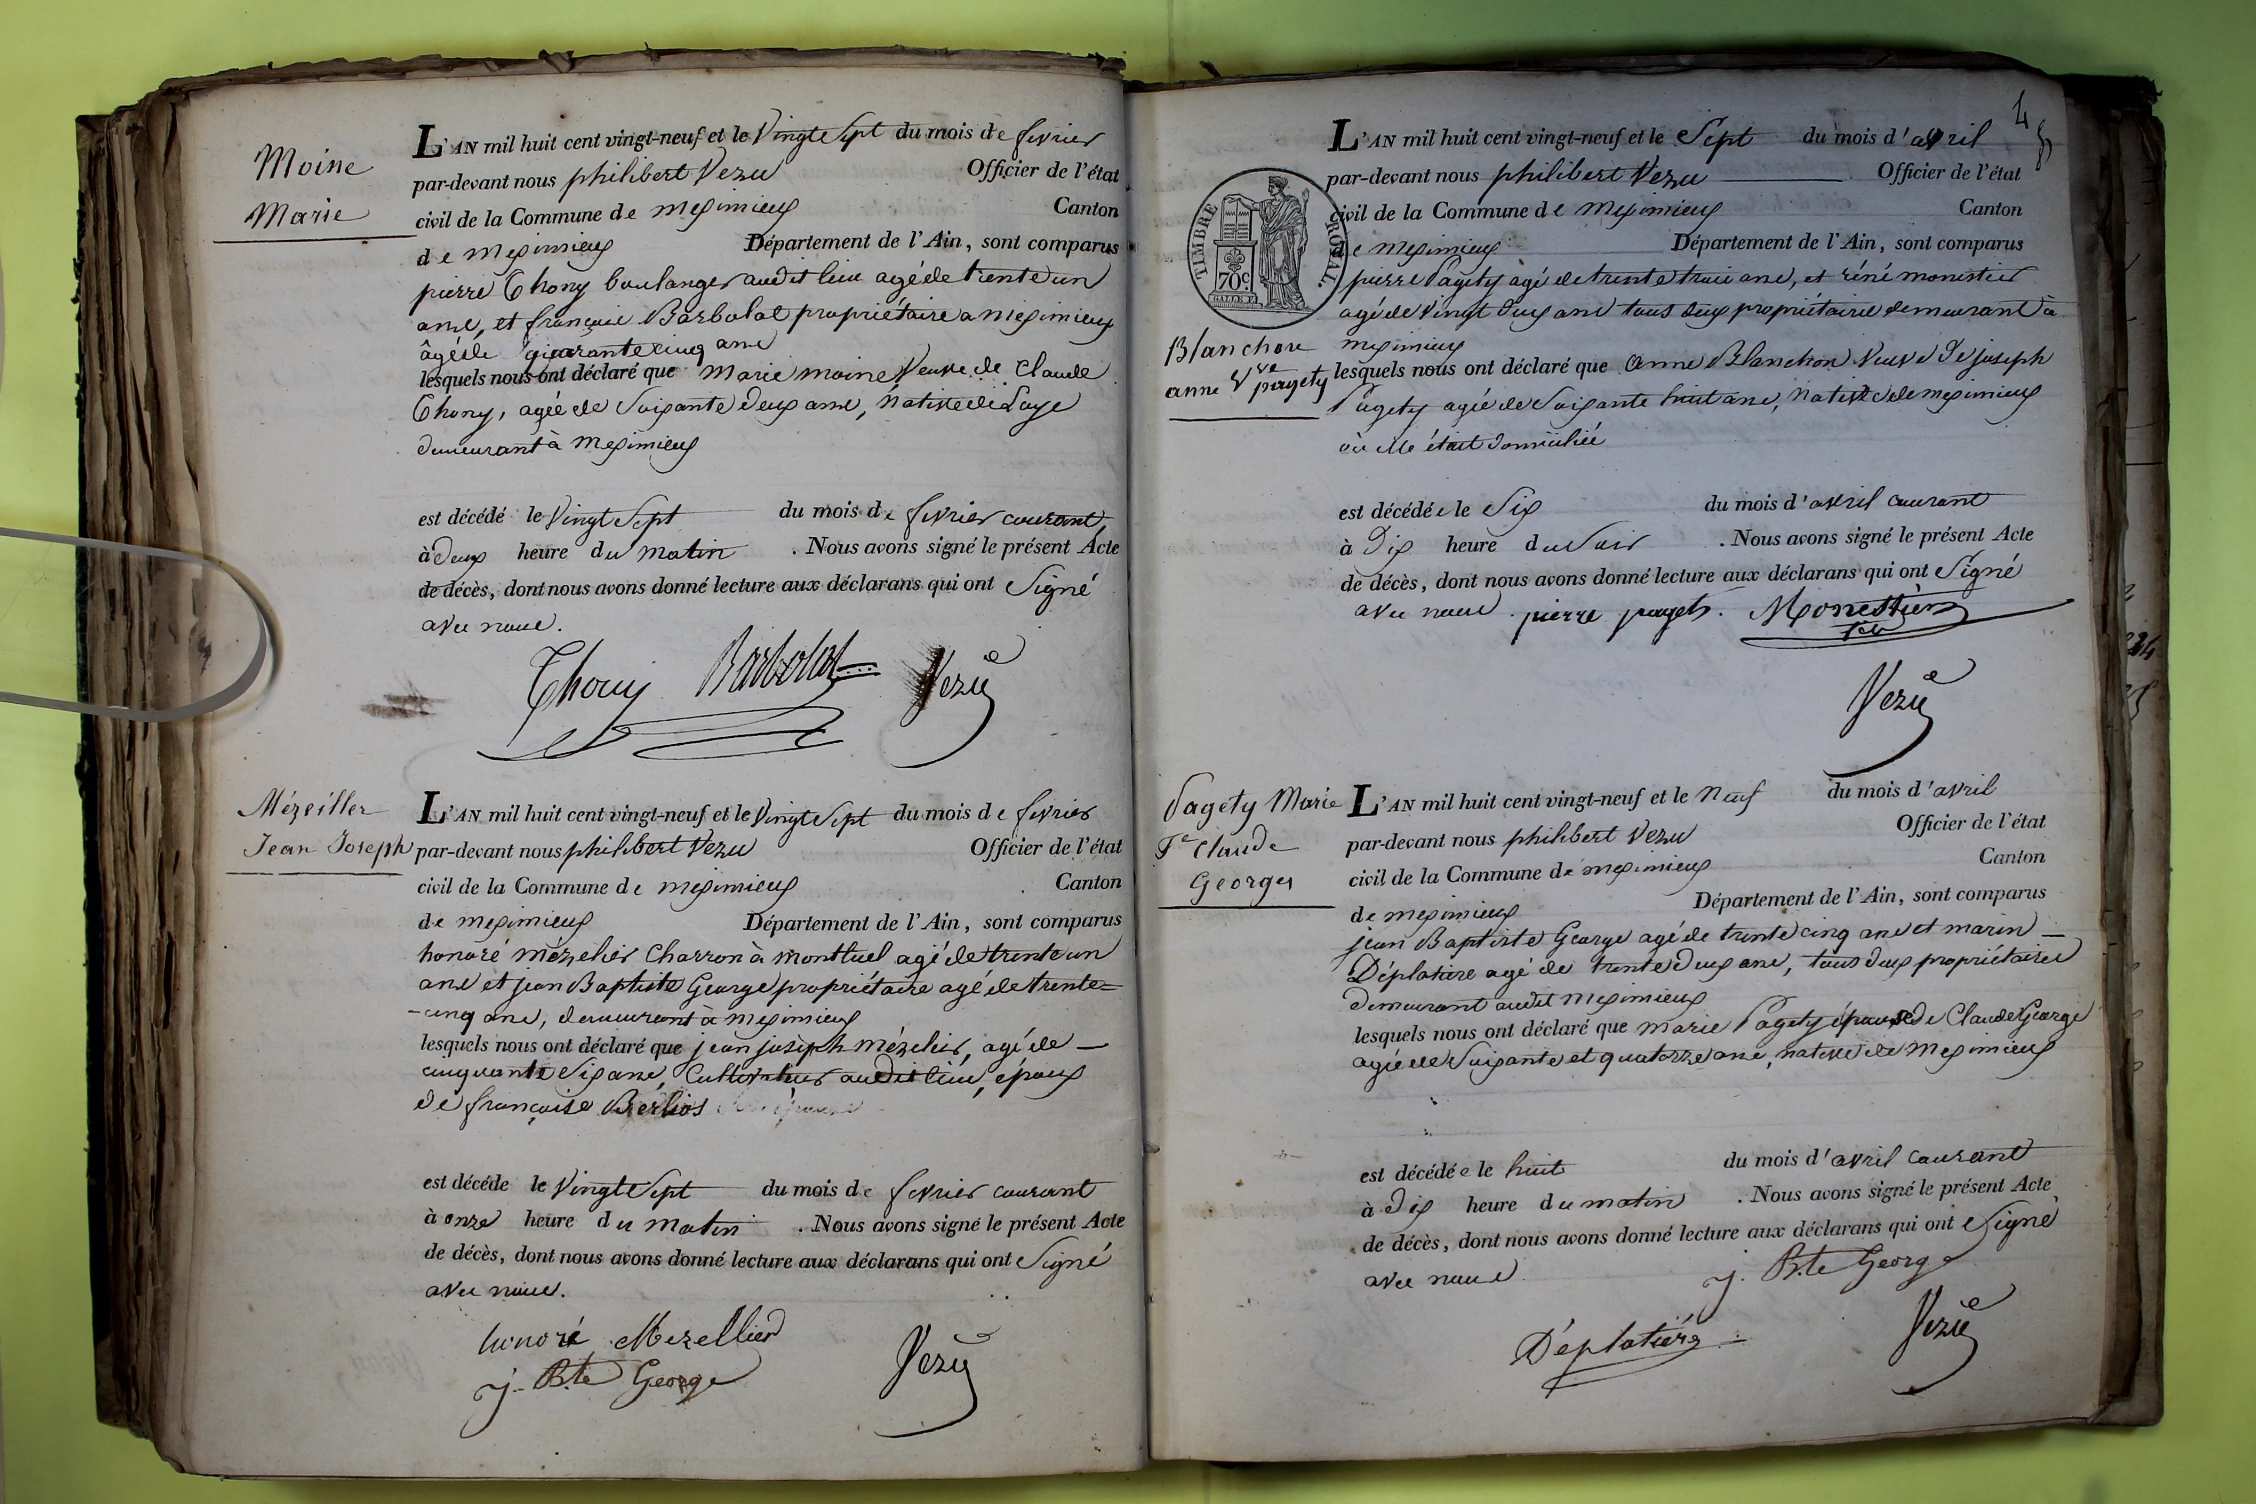 Moine
Marie
L'AN mil huit cent vingt-neuf et le Vingt Sept du mois de fevrier
par-devant nous philibert Vezu Officier de l'état
civil de la Commune de meximieux Canton
de meximieux Département de l'Ain, sont comparus
pierre Thony boulanger audit lieu agé de trente un
ans, et françois Barbolat propriétaire a meximieux
âgé de quarante cinq ans
lesquels nous ont déclaré que marie moine Veuve de Claude
Thony, agée de Soixante deux ans, Native de Loye
demeurant à meximieux
est décédé le Vingt Sept du mois de fevrier courant
à deux heure du matin . Nous avons signé le présent Acte
de décès, dont nous avons donné lecture aux déclarans qui ont Signé
avec nous.
Thony Barbolat Vezu
Mézeiller
Jean Joseph
L'AN mil huit cent vingt-neuf et le Vingt Sept du mois de fevrier
par-devant nous philibert Vezu Officier de l'état
civil de la Commune de meximieux Canton
de meximieux Département de l'Ain, sont comparus
honoré mézelier Charron à montluel agé de trente un
ans et jean Baptiste George propriétaire agé de trente=
-cinq ans, demeurant à meximieux
lesquels nous ont déclaré que jean joseph mézelier, agé de
cinquante Six ans, Cultivateur audit lieu, epoux
de françoise Berlios
est décédé le Vingt Sept du mois de fevrier courant
à onze heure du matin . Nous avons signé le présent Acte
de décès, dont nous avons donné lecture aux déclarans qui ont Signé
avec nous.
honoré Mezellier
j. Bte George Vezu
4
TIMBRE ROYAL.
70c.
L'AN mil huit cent vingt-neuf et le Sept du mois d'avril
par-devant nous philibert Vezu Officier de l'état
civil de la Commune de meximieux Canton
de meximieux Département de l'Ain, sont comparus
pierre Pagety agé de trente trois ans, et réné monestier
agé de Vingt deux ans tous deux propriétaires demeurant à
meximieux
Blanchon
anne Vve pagety
lesquels nous ont déclaré que anne Blanchon Veuve de joseph
Pagety agée de Soixante huit ans, Native de meximieux
où elle était domiciliée
est décédée le Six du mois d'avril courant
à Dix heure du Soir . Nous avons signé le présent Acte
de décès, dont nous avons donné lecture aux déclarans qui ont Signé
avec nous. pierre paget. Monestier
Vezu
Pagety Marie
Fe Claude
Georges
L'AN mil huit cent vingt-neuf et le Neuf du mois d'avril
par-devant nous philibert Vezu Officier de l'état
civil de la Commune de meximieux Canton
de meximieux Département de l'Ain, sont comparus
jean Baptiste George agé de trente cinq ans et marin
Déplatière agé de trente deux ans, tous deux propriétaires
demeurant audit meximieux
lesquels nous ont déclaré que marie Pagety épouse de Claude George
agée de Soixante et quatorze ans, native de Meximieux
est décédée le huit du mois d'avril courant
à Dix heure du matin . Nous avons signé le présent Acte
de décès, dont nous avons donné lecture aux déclarans qui ont Signé
avec nous j. Bte George
Déplatière Vezu